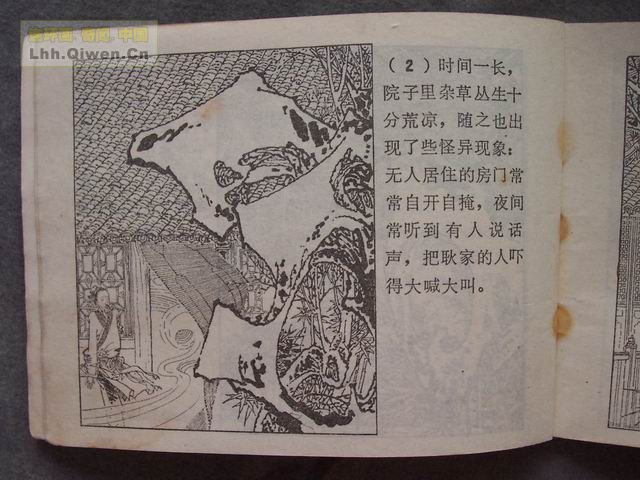 连环画·奇闻·中国
Lhh.Qiwen.Cn
（2）时间一长，
院子里杂草丛生十
分荒凉，随之也出
现了些怪异现象：
无人居住的房门常
常自开自掩，夜间
常听到有人说话
声，把耿家的人吓
得大喊大叫。